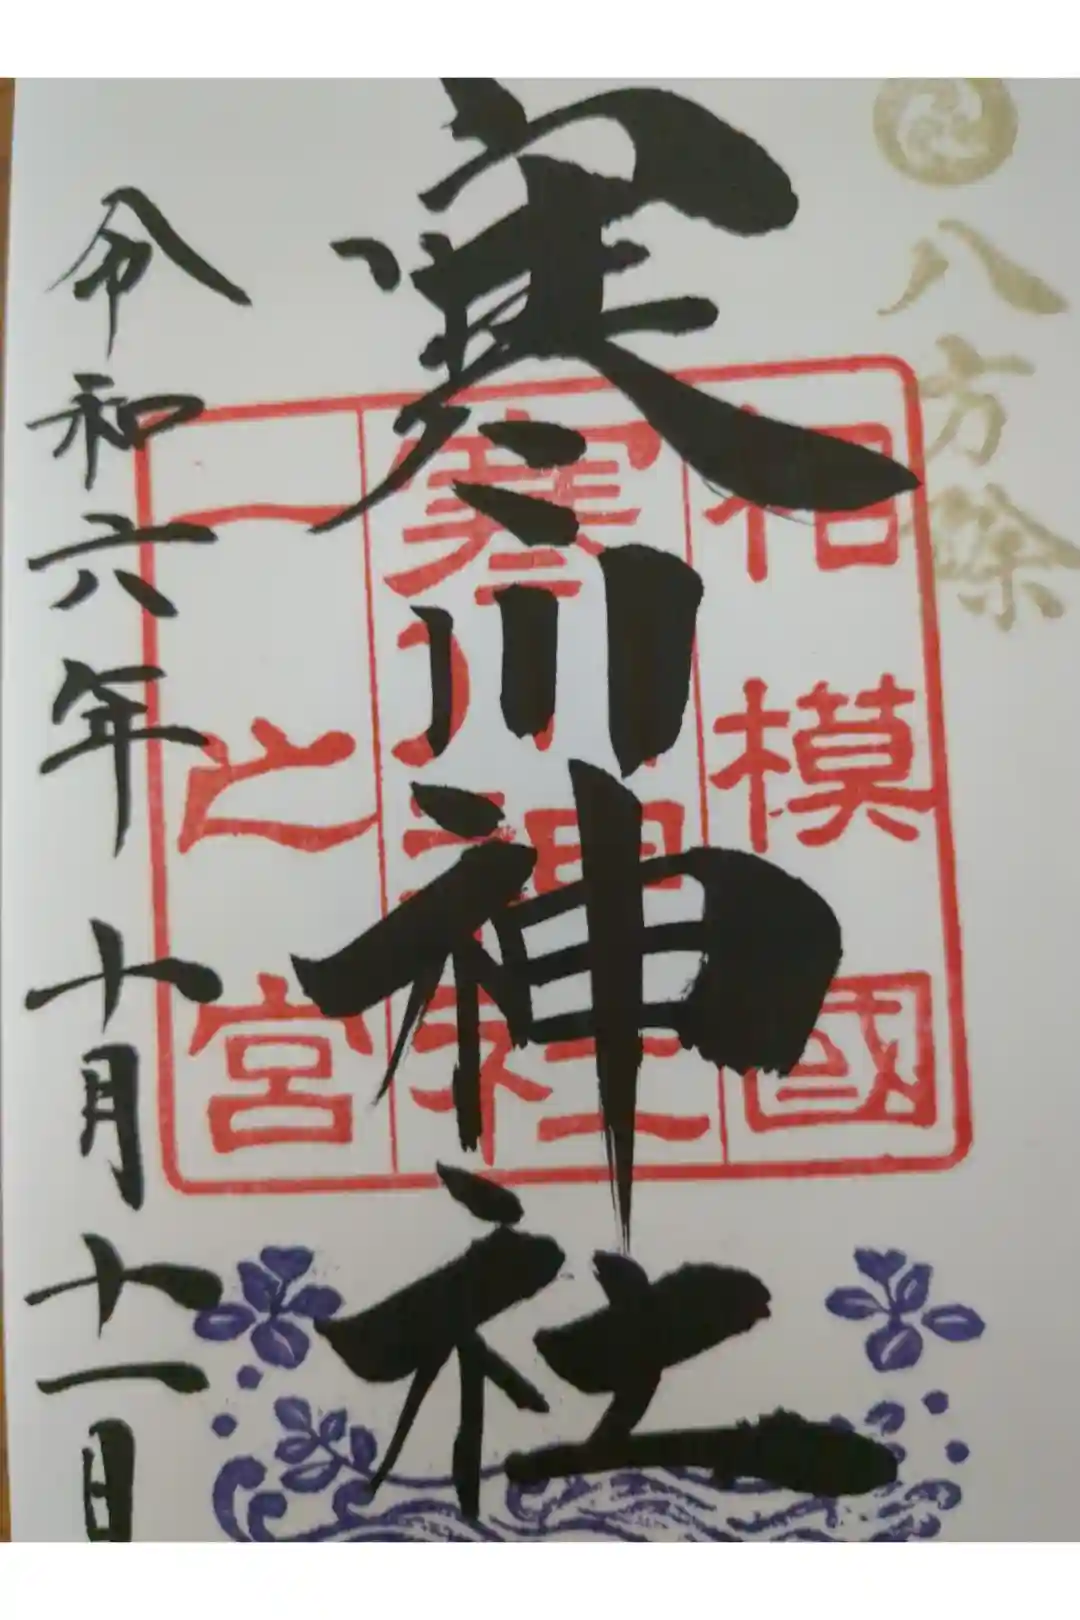 八方除
寒川神社
相模國
寒川神社
一之宮
令和六年十月十一日